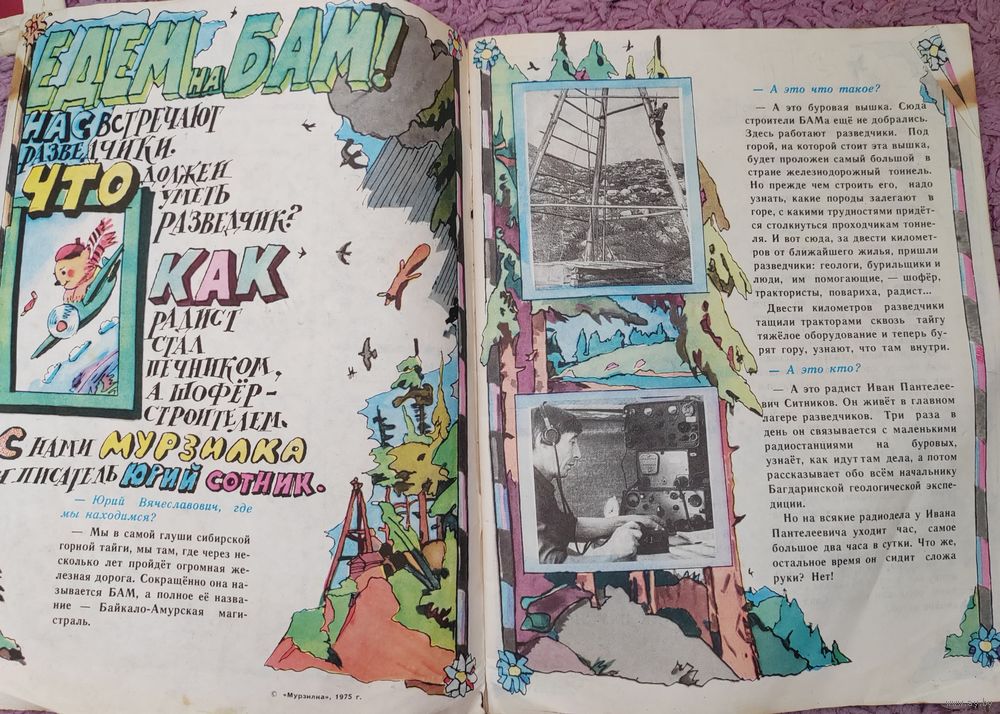 ЕДЕМ НА БАМ!
НАС ВСТРЕЧАЮТ
РАЗВЕДЧИКИ.
ЧТО ДОЛЖЕН
УМЕТЬ
РАЗВЕДЧИК?
КАК
РАДИСТ
СТАЛ
ПЕЧНИКОМ,
А ШОФЁР-
СТРОИТЕЛЕМ.
С НАМИ МУРЗИЛКА
ПИСАТЕЛЬ ЮРИЙ СОТНИК.
— Юрий Вячеславович, где
мы находимся?
— Мы в самой глуши сибирской
горной тайги, мы там, где через не-
сколько лет пройдёт огромная же-
лезная дорога. Сокращённо она на-
зывается БАМ, а полное её назва-
ние — Байкало-Амурская маги-
страль.
© «Мурзилка», 1975 г.
— А это что такое?
— А это буровая вышка. Сюда
строители БАМа ещё не добрались.
Здесь работают разведчики. Под
горой, на которой стоит эта вышка,
будет проложен самый большой в
стране железнодорожный тоннель.
Но прежде чем строить его, надо
узнать, какие породы залегают в
горе, с какими трудностями придёт-
ся столкнуться проходчикам тонне-
ля. И вот сюда, за двести километ-
ров от ближайшего жилья, пришли
разведчики: геологи, бурильщики и
люди, им помогающие, — шофёр,
трактористы, повариха, радист...
Двести километров разведчики
тащили тракторами сквозь тайгу
тяжёлое оборудование и теперь бу-
рят гору, узнают, что там внутри.
— А это кто?
— А это радист Иван Пантелее-
вич Ситников. Он живёт в главном
лагере разведчиков. Три раза в
день он связывается с маленькими
радиостанциями на буровых,
узнаёт, как идут там дела, а потом
рассказывает обо всём начальнику
Багдаринской геологической экспе-
диции.
Но на всякие радиодела у Ивана
Пантелеевича уходит час, самое
большое два часа в сутки. Что же,
остальное время он сидит сложа
руки? Нет!